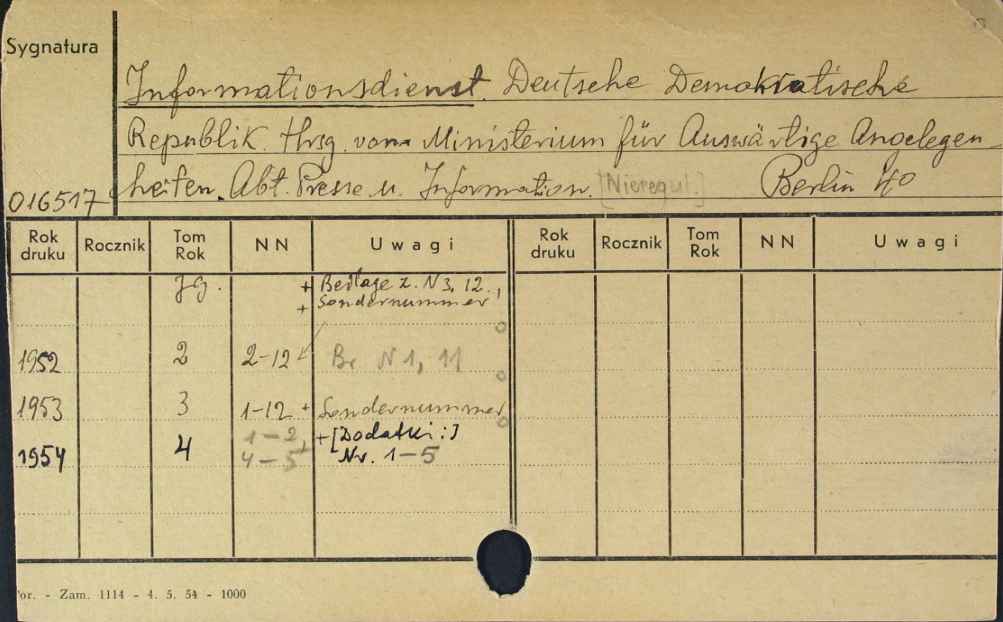 Sygnatura
Informationsdienst. Deutsche Demokratische
Republik. Hrsg. vom Ministerium für Auswärtige Angelegen-
016517 heiten. Abt. Presse u. Information. [Nieregul.] Berlin 40
Rok druku Rocznik Tom Rok NN Uwagi Rok druku Rocznik Tom Rok NN Uwagi
Jg. + Beilage z. N 3, 12.,
+ Sondernummer
1952 2 2-12 Br N 1, 11
1953 3 1-12 + Sondernummer
1954 4 1-2, 4-5 + [Dodatki:]
Nr. 1-5
or. - Zam. 1114 - 4. 5. 54 - 1000